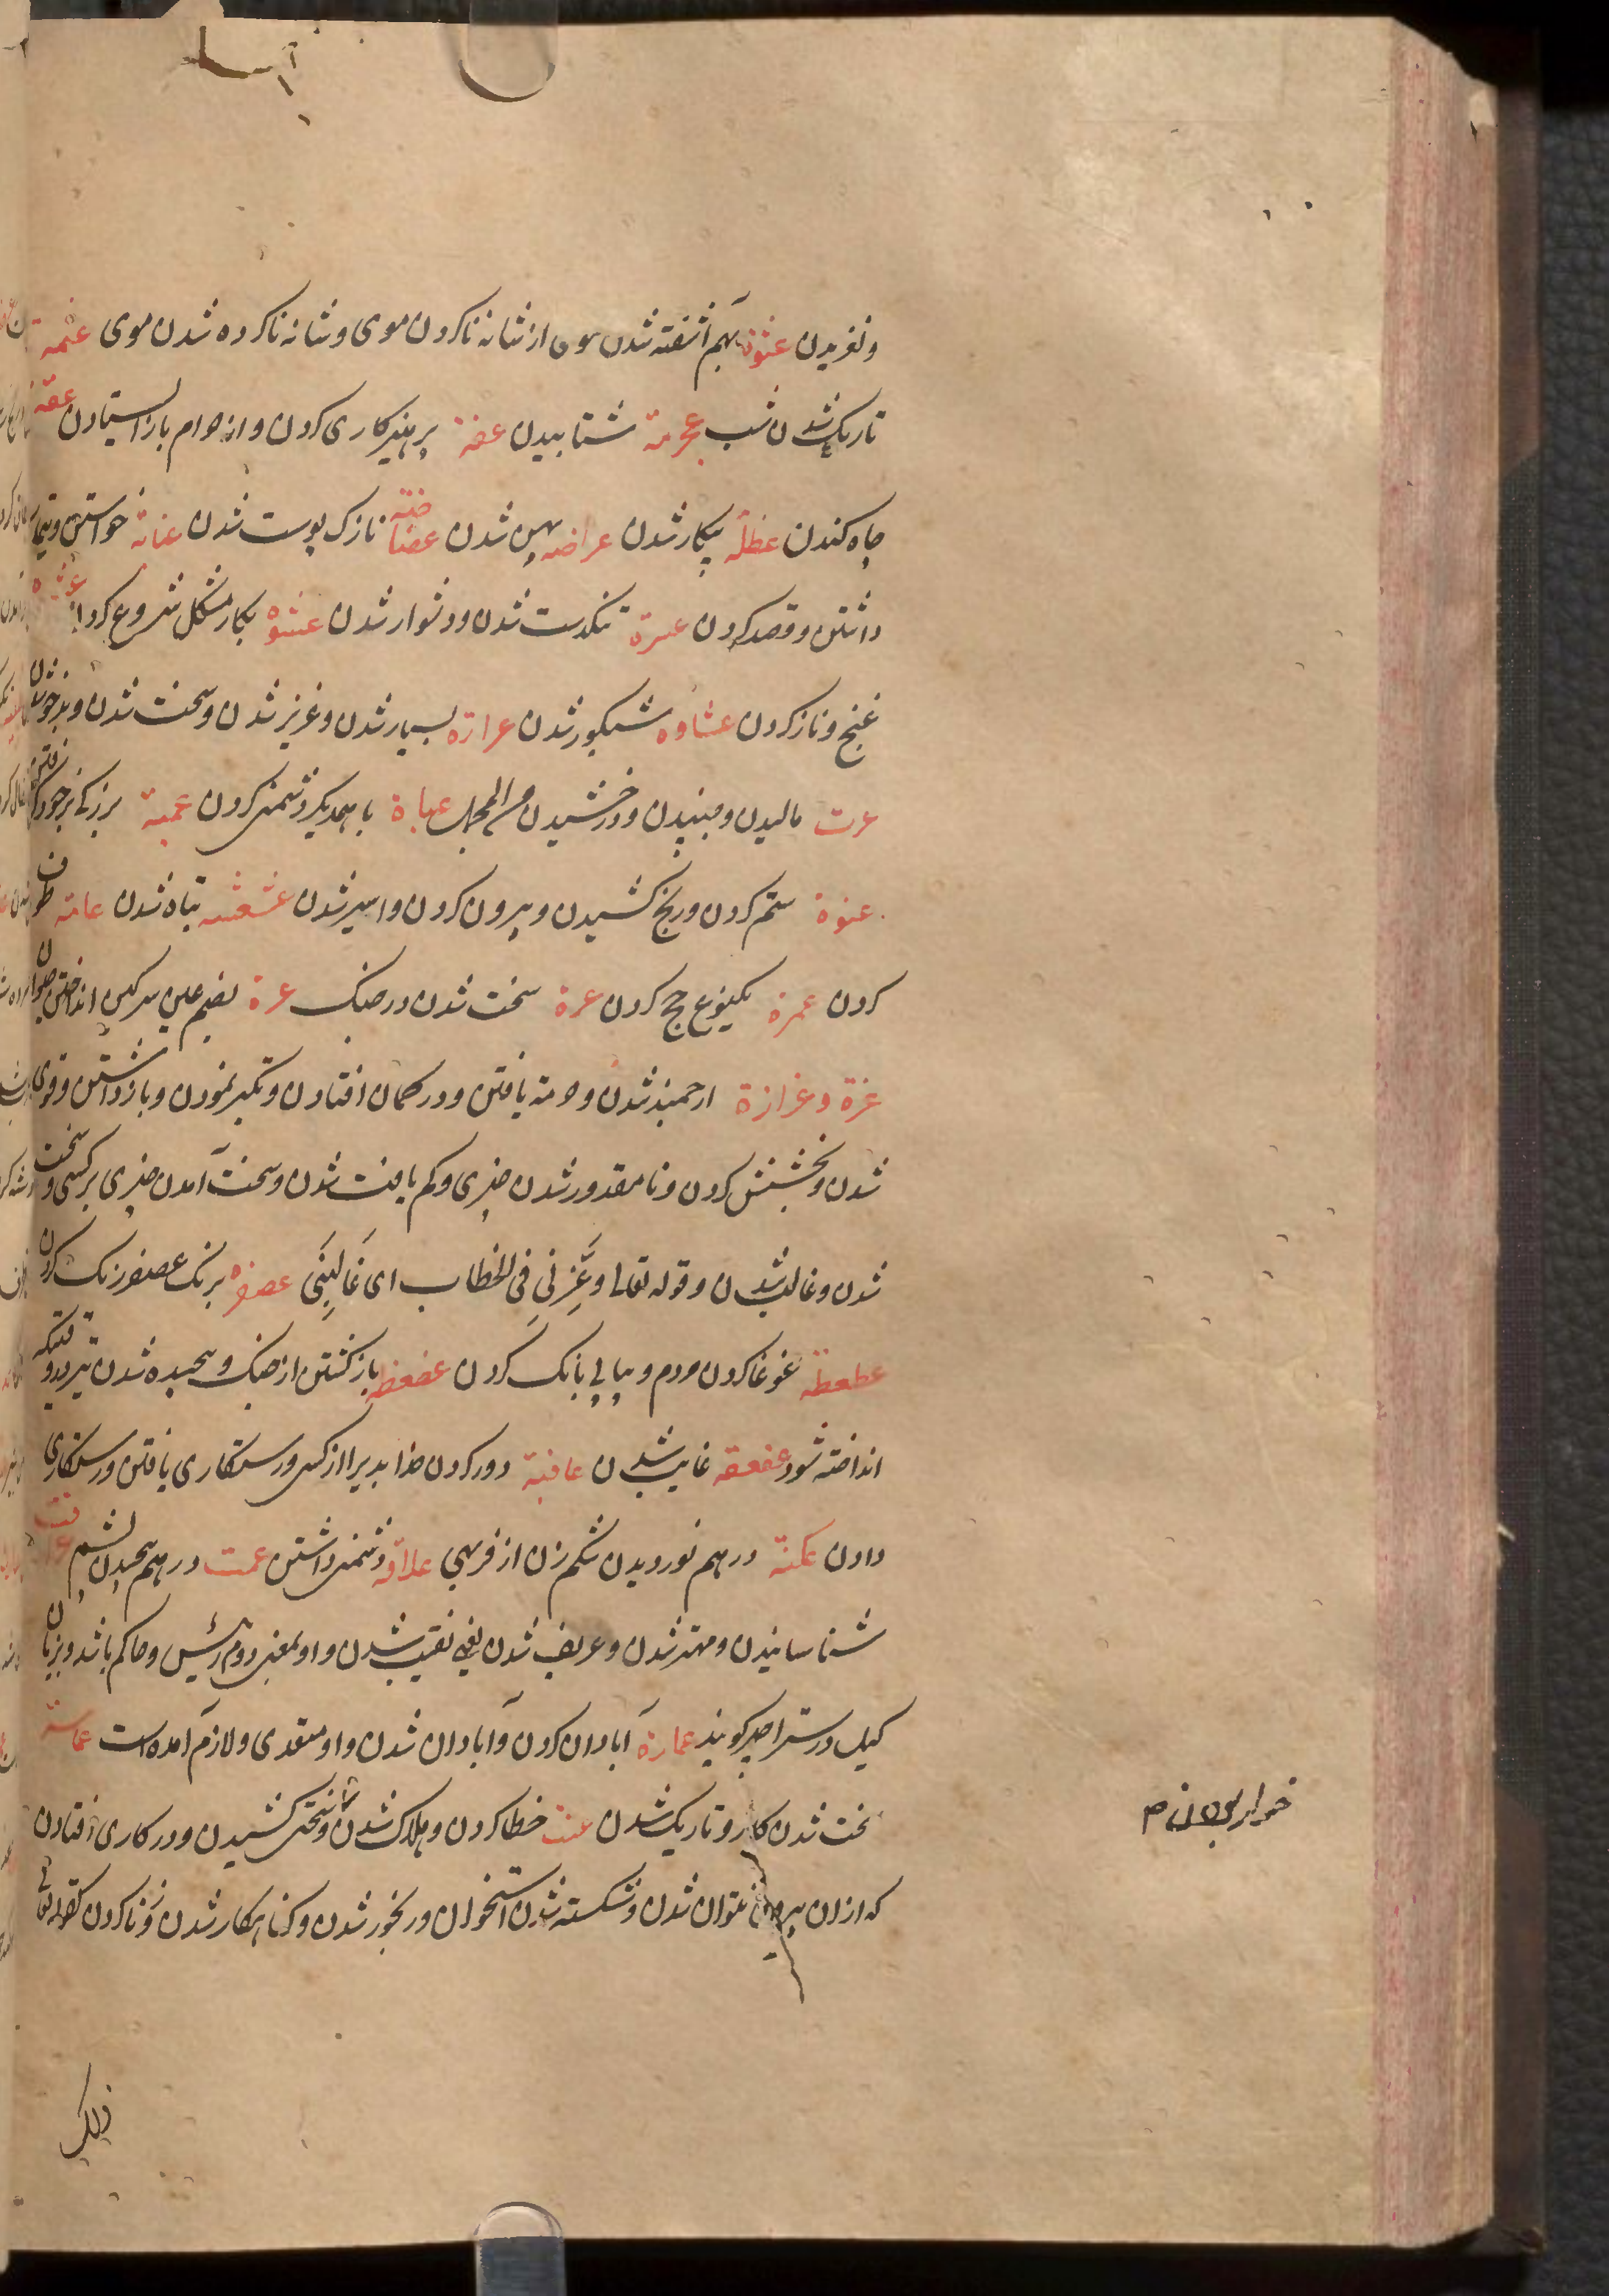 و لغزیدن عثوة بهم آشفته شدن موی از شانه ناکردن موی و شانه ناکرده شدن موی عتمة
تاریک شدن شب عجرمة شتابیدن عفة پرهیزکاری کردن و از حرام باز ایستادن عقة
چاه کندن عطلة بیکار شدن عراضه پهن شدن عضاضة نازک پوست شدن عنایة خواستن و تیمار
داشتن و قصد کردن عسرة تنگدست شدن و دشوار شدن عشوه بکار مشکل شروع کردن
غنج و ناز کردن عشاوه شبکور شدن عرازه بسیار شدن و عزیز شدن و سخت شدن و بدخوی شدن
عرت مالیدن و جنبیدن و درخشیدن من المجمل عباة با همدیگر دشمنی کردن عمیة بزرگی بر خود گرفتن
عنوة ستم کردن و رنج کشیدن و بیرون کردن و اسیر شدن عشعشه تباه شدن عامة طوف
کردن عمرة یکنوع حج کردن عرة سخت شدن در جنگ عرة بضم عین سرگین انداختن حیوان
عزة و عزازة ارجمند شدن و حرمة یافتن و در گمان افتادن و تکبر نمودن و باز داشتن و قوی
شدن و بخشش کردن و نامقدور شدن چیزی و کم یافت شدن و سخت آمدن چیزی بر کسی و سخت
شدن و غالب شدن و قوله تعالی وَعَزَّنِی فِی الخطاب ای غَالبَنِی عصفره برنگ عصفر رنگ کردن
عطعطة غوغا کردن مردم و پیاپی بانک کردن عضعظه باز گشتن از جنگ و پیچیده شدن تیر وقتیکه
انداخته شود عفعقه غایب شدن عافیة دور کردن خدا بدیرا از کسی و رستگاری یافتن و رستگاری
دادن عکنة درهم نوردیدن شکم زن از فربهی علاقه دشمنی داشتن عمت درهم پیچیدن پشم عرافت
شناسانیدن و مهتر شدن و عریف شدن یعنی نقیب شدن و او بمعنی دوم رئیس و حاکم باشد و بزبان
گیل و رستر اجبر گویند عمارة آبادان کردن و آبادان شدن و او متعدی و لازم آمده است عماسة
سخت شدن کار و تاریک شدن عنت خطا کردن و هلاک شدن و سختی کشیدن و در کاری افتادن
خوار بودن م
که از ان بیرون نتوان شدن و شکسته شدن استخوان و رنجور شدن و گناهکار شدن و زنا کردن کقوله تعالی
ذلک